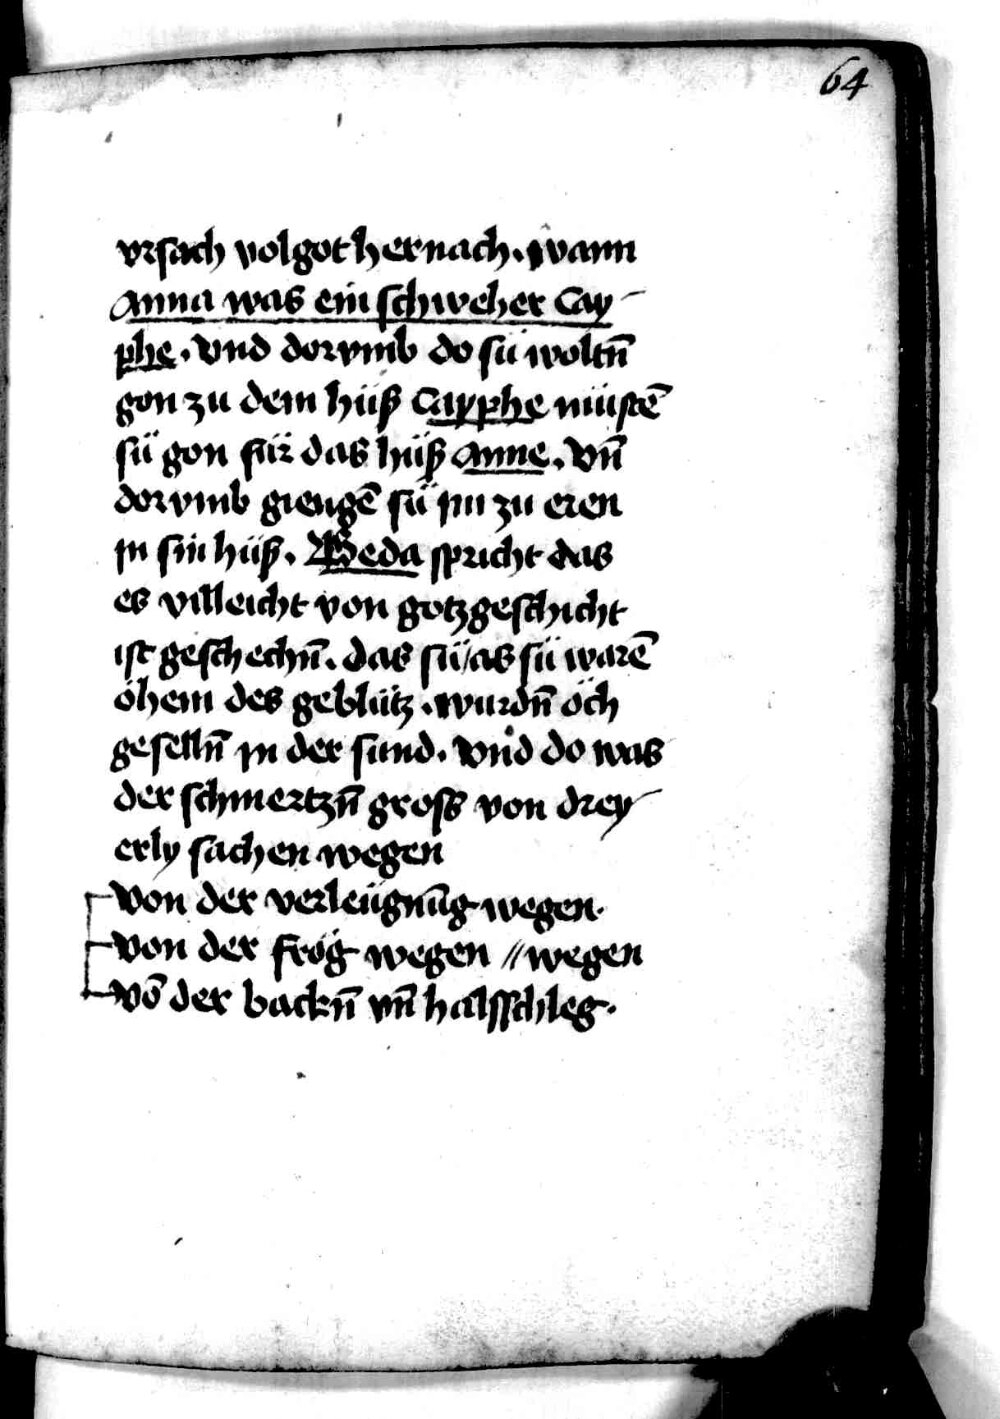 64
vrsach volgot hernach. wann
Anna was ein schweher Cay
phe. Vnd dorvmb do sü woltn̄
gon zu dem hüß Cayphe müstē
sü gon für das hüß Anne. Vn̄
dorvmb giengē sü im zu eren
jn sin hüß. Beda spricht das
es villeicht von gotzgeschicht
ist geschechn̄. das sü / as sü warē
öhem des geblütz. wurdn̄ öch
geselln̄ jn der sünd. Vnd do was
der schmertzn̄ gross von drey
erly sachen wegen
Von der verleügnūg wegen.
Von der frög wegen // wegen
Vō der backn̄ vn̄ halsschleg.